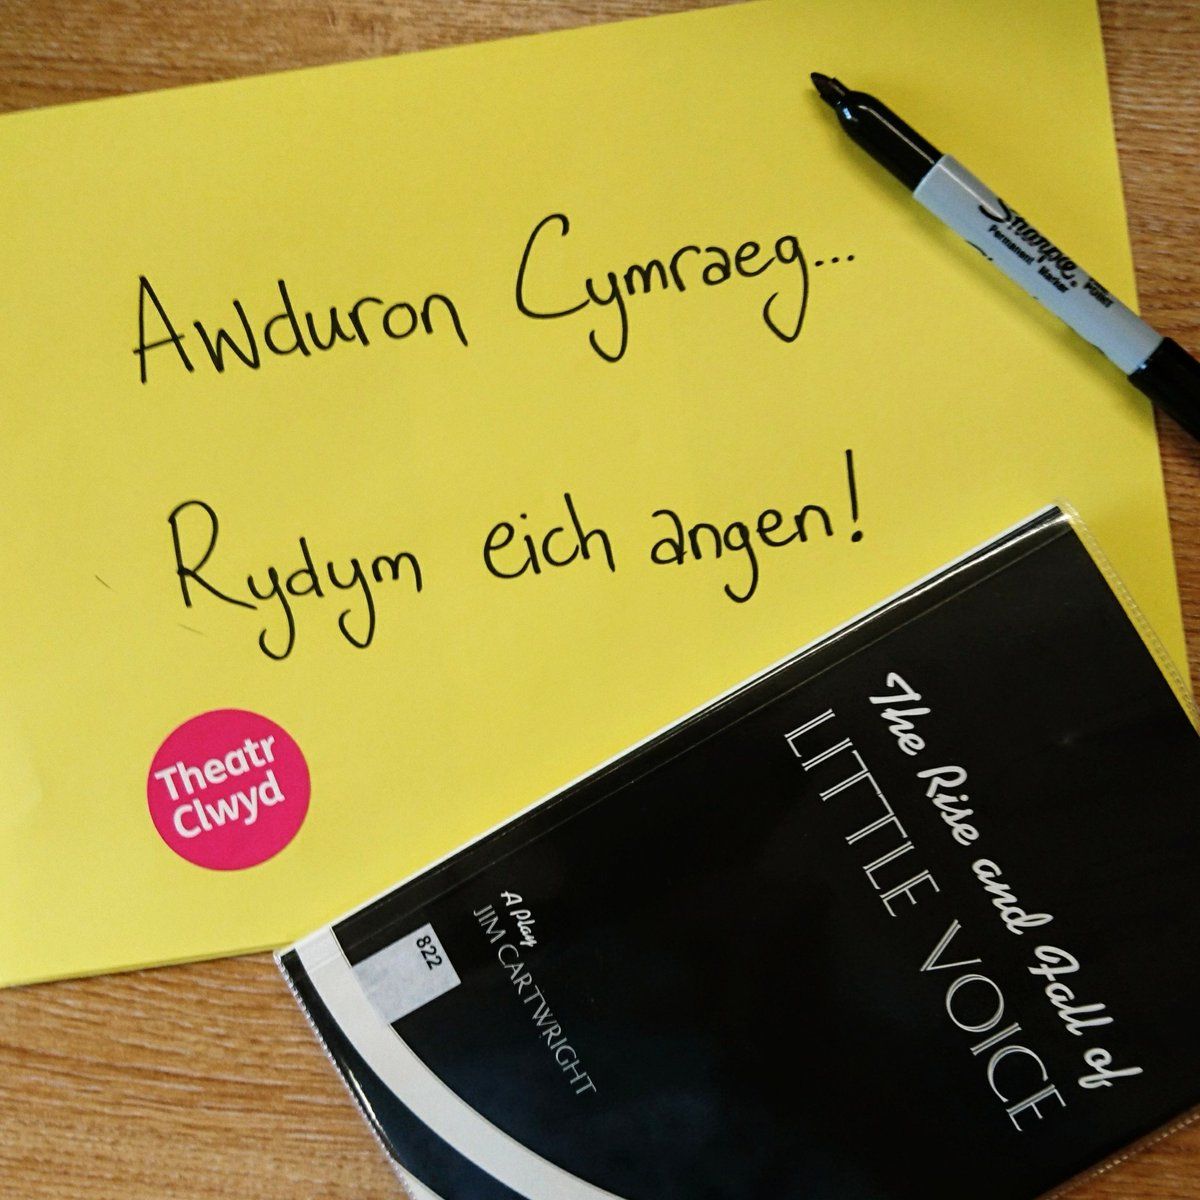 Awduron Cymraeg...
Rydym eich angen!
Theatr
Clwyd
Sharpie
Permanent Marker
The Rise and Fall of
LITTLE VOICE
A Play
JIM CARTWRIGHT
822